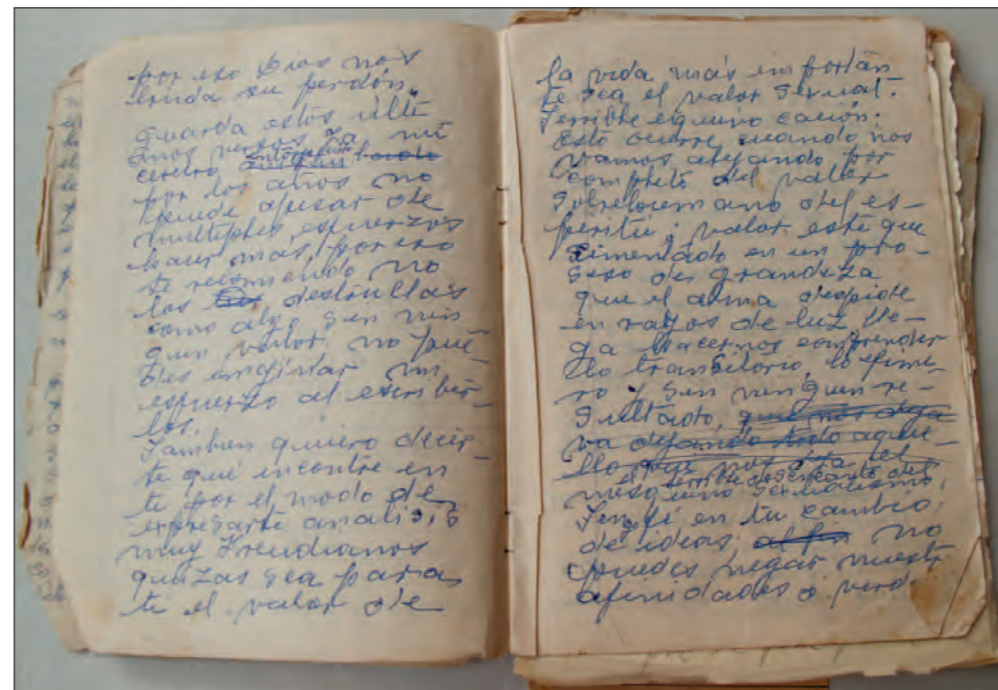 por eso Dios nos
brinda su perdón.
Guarda estos últi
mos versos ya mi
cerebro
por los años no
puede apesar de
multiples esfuerzos
hacer más, por eso
te recomiendo no
las destrullais
como algo sin nin
gun valor, no pue
des imajinar mi
esfuerzo al escribir
los.
Tambien quiero decir
te que encontre en
ti por el modo de
expresarte analisis
muy Freudianos
quizas sea para
ti el valor de
la vida más importan
te sea el valor sexual.
Terrible equivocación.
Esto ocurre cuando nos
vamos alejando por
completo del valor
sobrehumano del es-
píritu; valor este que
simentado en un pro-
seso de grandeza
que el alma despide
en rayos de luz lle-
ga hacernos comprender
lo transitorio, lo efime-
ro y sin ningun re-
sultado, que nos deja
va dejando todo aque-
llo que nos dejo el
terrible desencanto del
sexualismo,
Tengo fé en tu cambio
de ideas, no
puedes negar nuestr
afinidades o verd